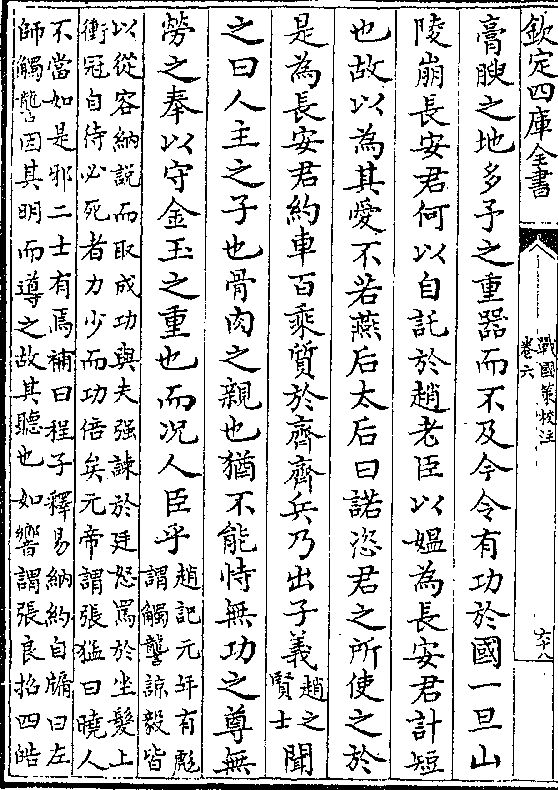 欽定四庫全書
戰國策校注
卷六
六十八
膏腴之地多予之重器而不及今令有功於國一旦山
陵崩長安君何以自託於趙老臣以媼為長安君計短
也故以為其愛不若燕后太后曰諾恣君之所使之於
是為長安君約車百乘質於齊齊兵乃出子義
趙之
賢士
聞
之曰人主之子也骨肉之親也猶不能恃無功之尊無
勞之奉以守金玉之重也而况人臣乎
趙記元年有彪
謂觸讋諒毅皆
以從容納説而取成功與夫强諫於廷怒罵於坐髮上
衝冠自待必死者力少而功倍矣元帝謂張猛曰曉人
不當如是邪二士有焉補曰程子釋易納約自牖曰左
師觸讋因其明而導之故其聽也如響謂張良招四皓